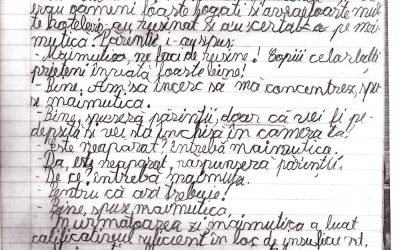 erau oameni foarte bogați și aranj foarte mul
te hoteluri, au rușinat și au certat-o pe mai
muțica. Părinții i-au spus:
- Maimuțico, ne faci de rușine! Copiii celorlalți
prieteni învață foarte bine!
- Bine. Am să încerc să mă concentrez, spu-
se maimuțica.
- Bine, spuseră părinții, doar că vei fi pe-
depsită și vei sta închisă în camera ta!
- Este neaparat? întrebă maimuțica.
- Da, este neaparat, răspunseră părinții.
- De ce? întrebă maimuța.
- Pentru că așa trebuie!
- Bine, spuse maimuțica.
În următoarea zi maimuțica a luat
calificativul suficient în loc de insuficient,